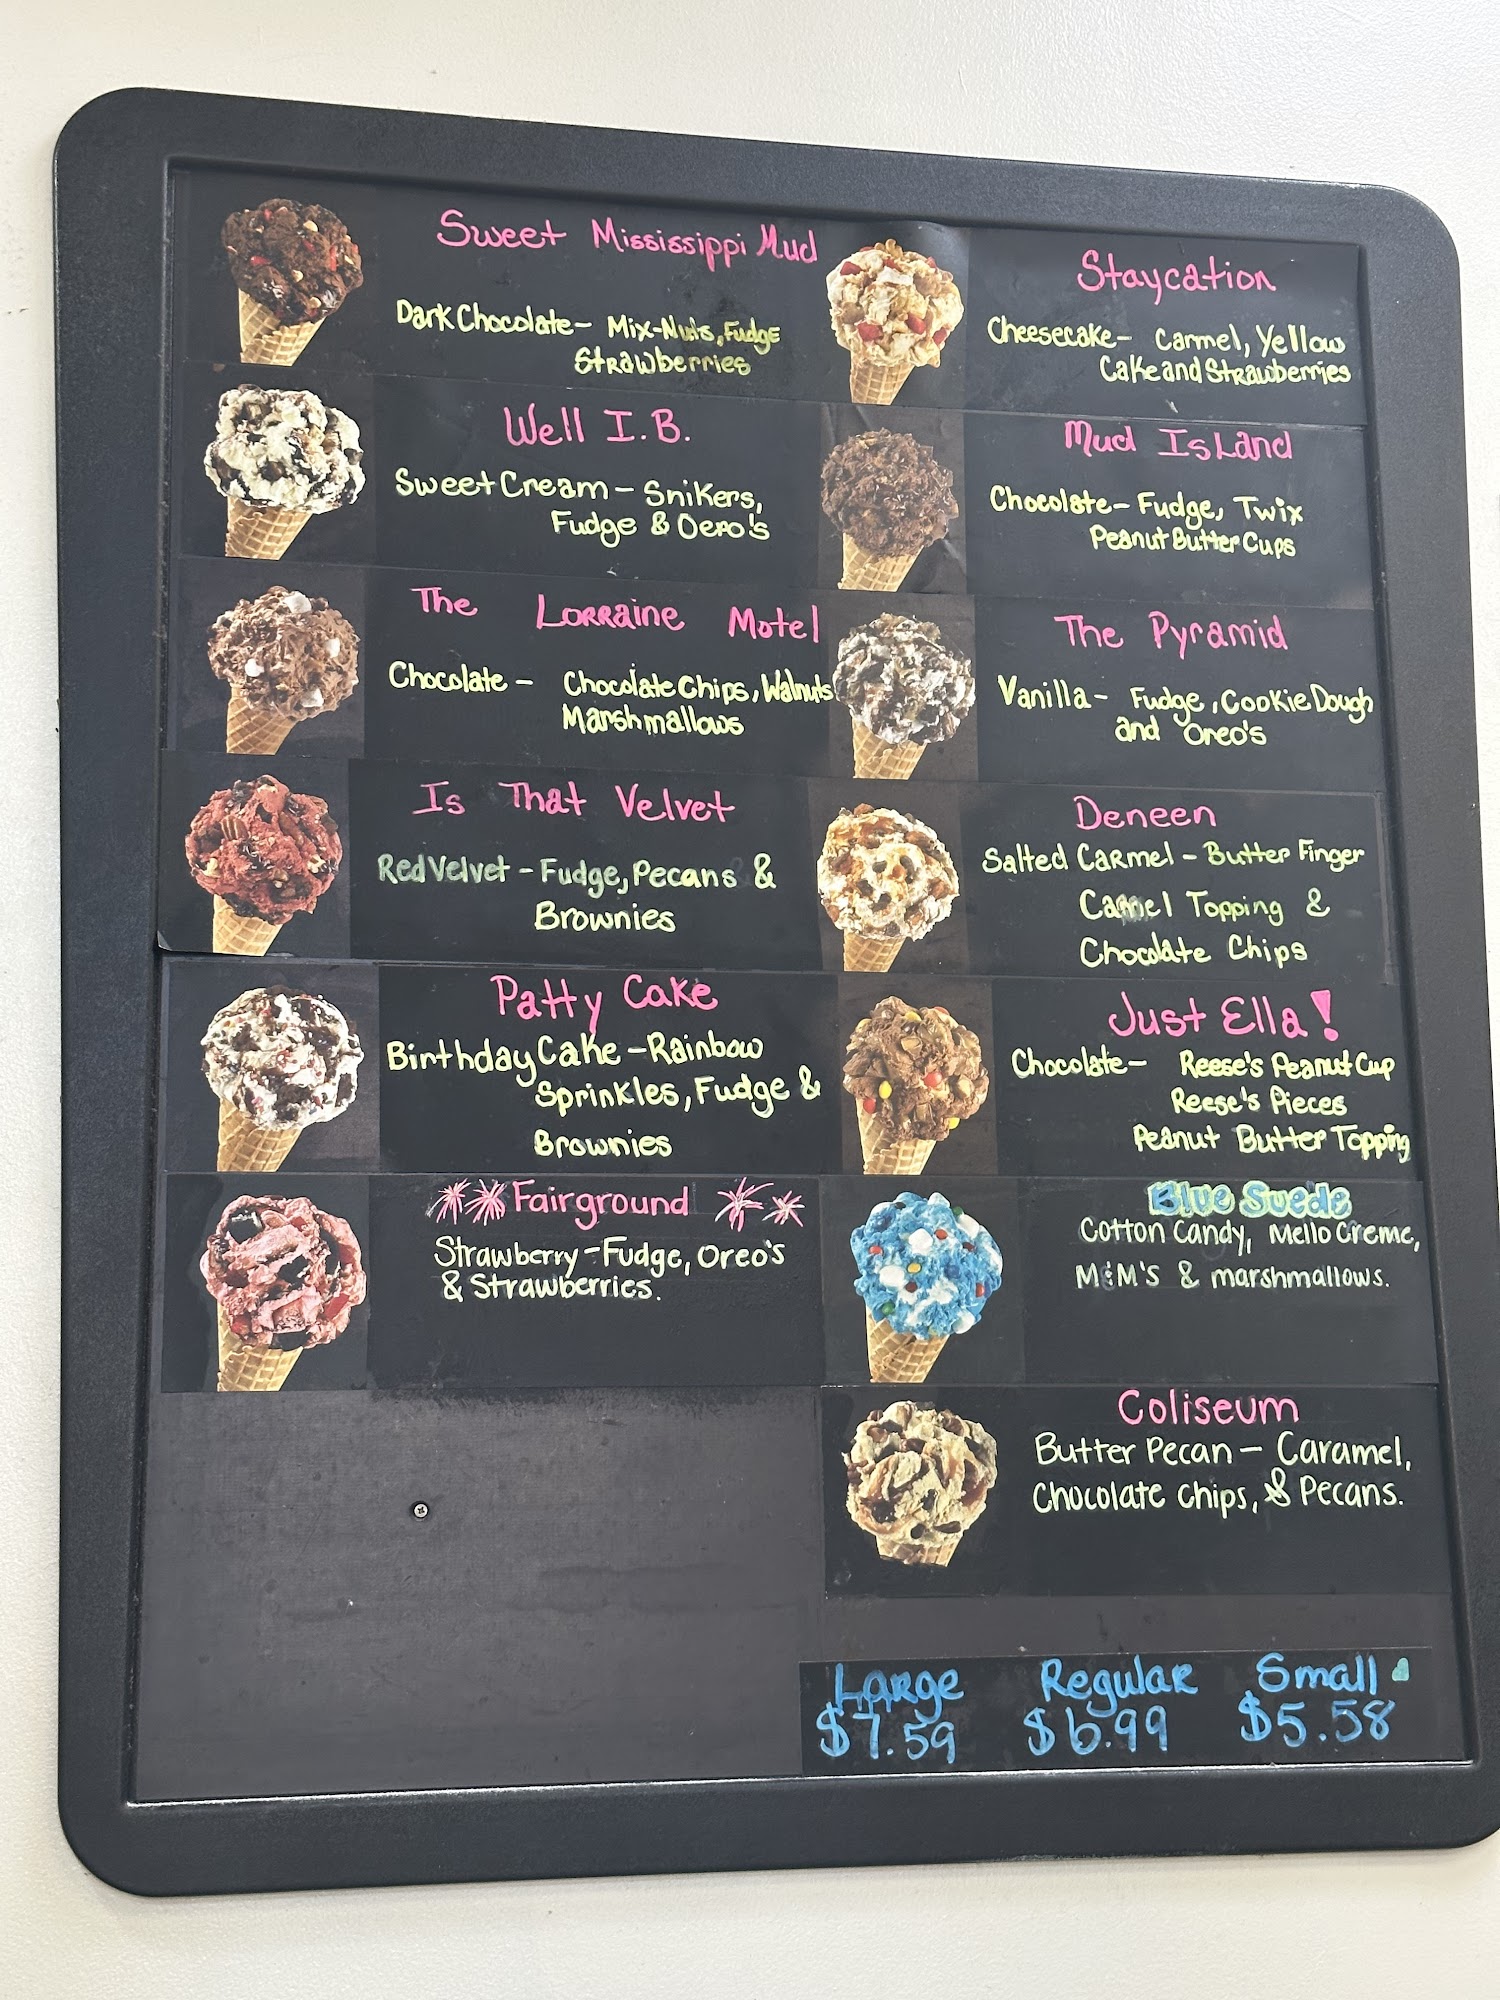 Sweet Mississippi Mud
Dark Chocolate- Mix-Nuts, Fudge
Strawberries
Staycation
Cheesecake- Carmel, Yellow
Cake and Strawberries
Well I.B.
Sweet Cream - Snikers,
Fudge & Oero's
Mud Island
Chocolate- Fudge, Twix
Peanut Butter Cups
The Lorraine Motel
Chocolate - Chocolate Chips, Walnuts
Marshmallows
The Pyramid
Vanilla- Fudge, Cookie Dough
and Oreo's
Is That Velvet
Red Velvet - Fudge, Pecans &
Brownies
Deneen
Salted Carmel - Butter Finger
Carmel Topping &
Chocolate Chips
Patty Cake
Birthday Cake - Rainbow
Sprinkles, Fudge &
Brownies
Just Ella!
Chocolate- Reese's Peanut Cup
Reese's Pieces
Peanut Butter Topping
Fairground
Strawberry - Fudge, Oreo's
& Strawberries.
Blue Suede
Cotton Candy, Mello Creme,
M&M'S & marshmallows.
Coliseum
Butter Pecan - Caramel,
Chocolate Chips, & Pecans.
Large Regular Small
$7.59 $6.99 $5.58